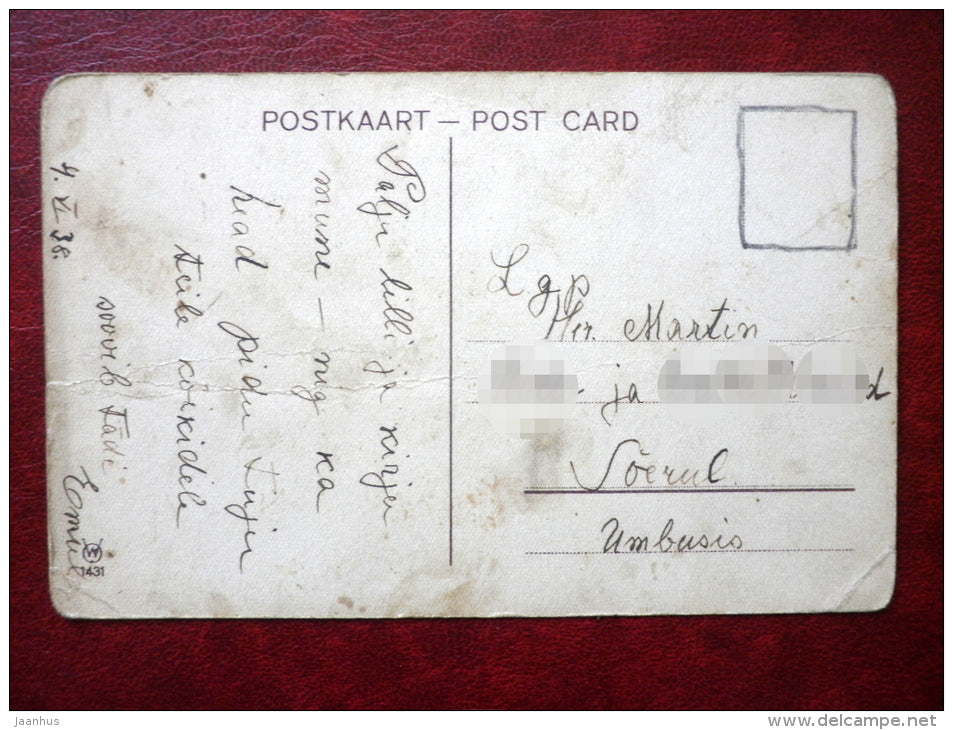 POSTKAART — POST CARD
Palju lilli ja kirju
mune — nig ka
head pidu tuju
teile kõikidele
soovib Tädi
4. VI 38.
1431
L. g. p.
Hr. Martin
ja
Sõerul
Umbusis
jaanhus
www.delcampe.net